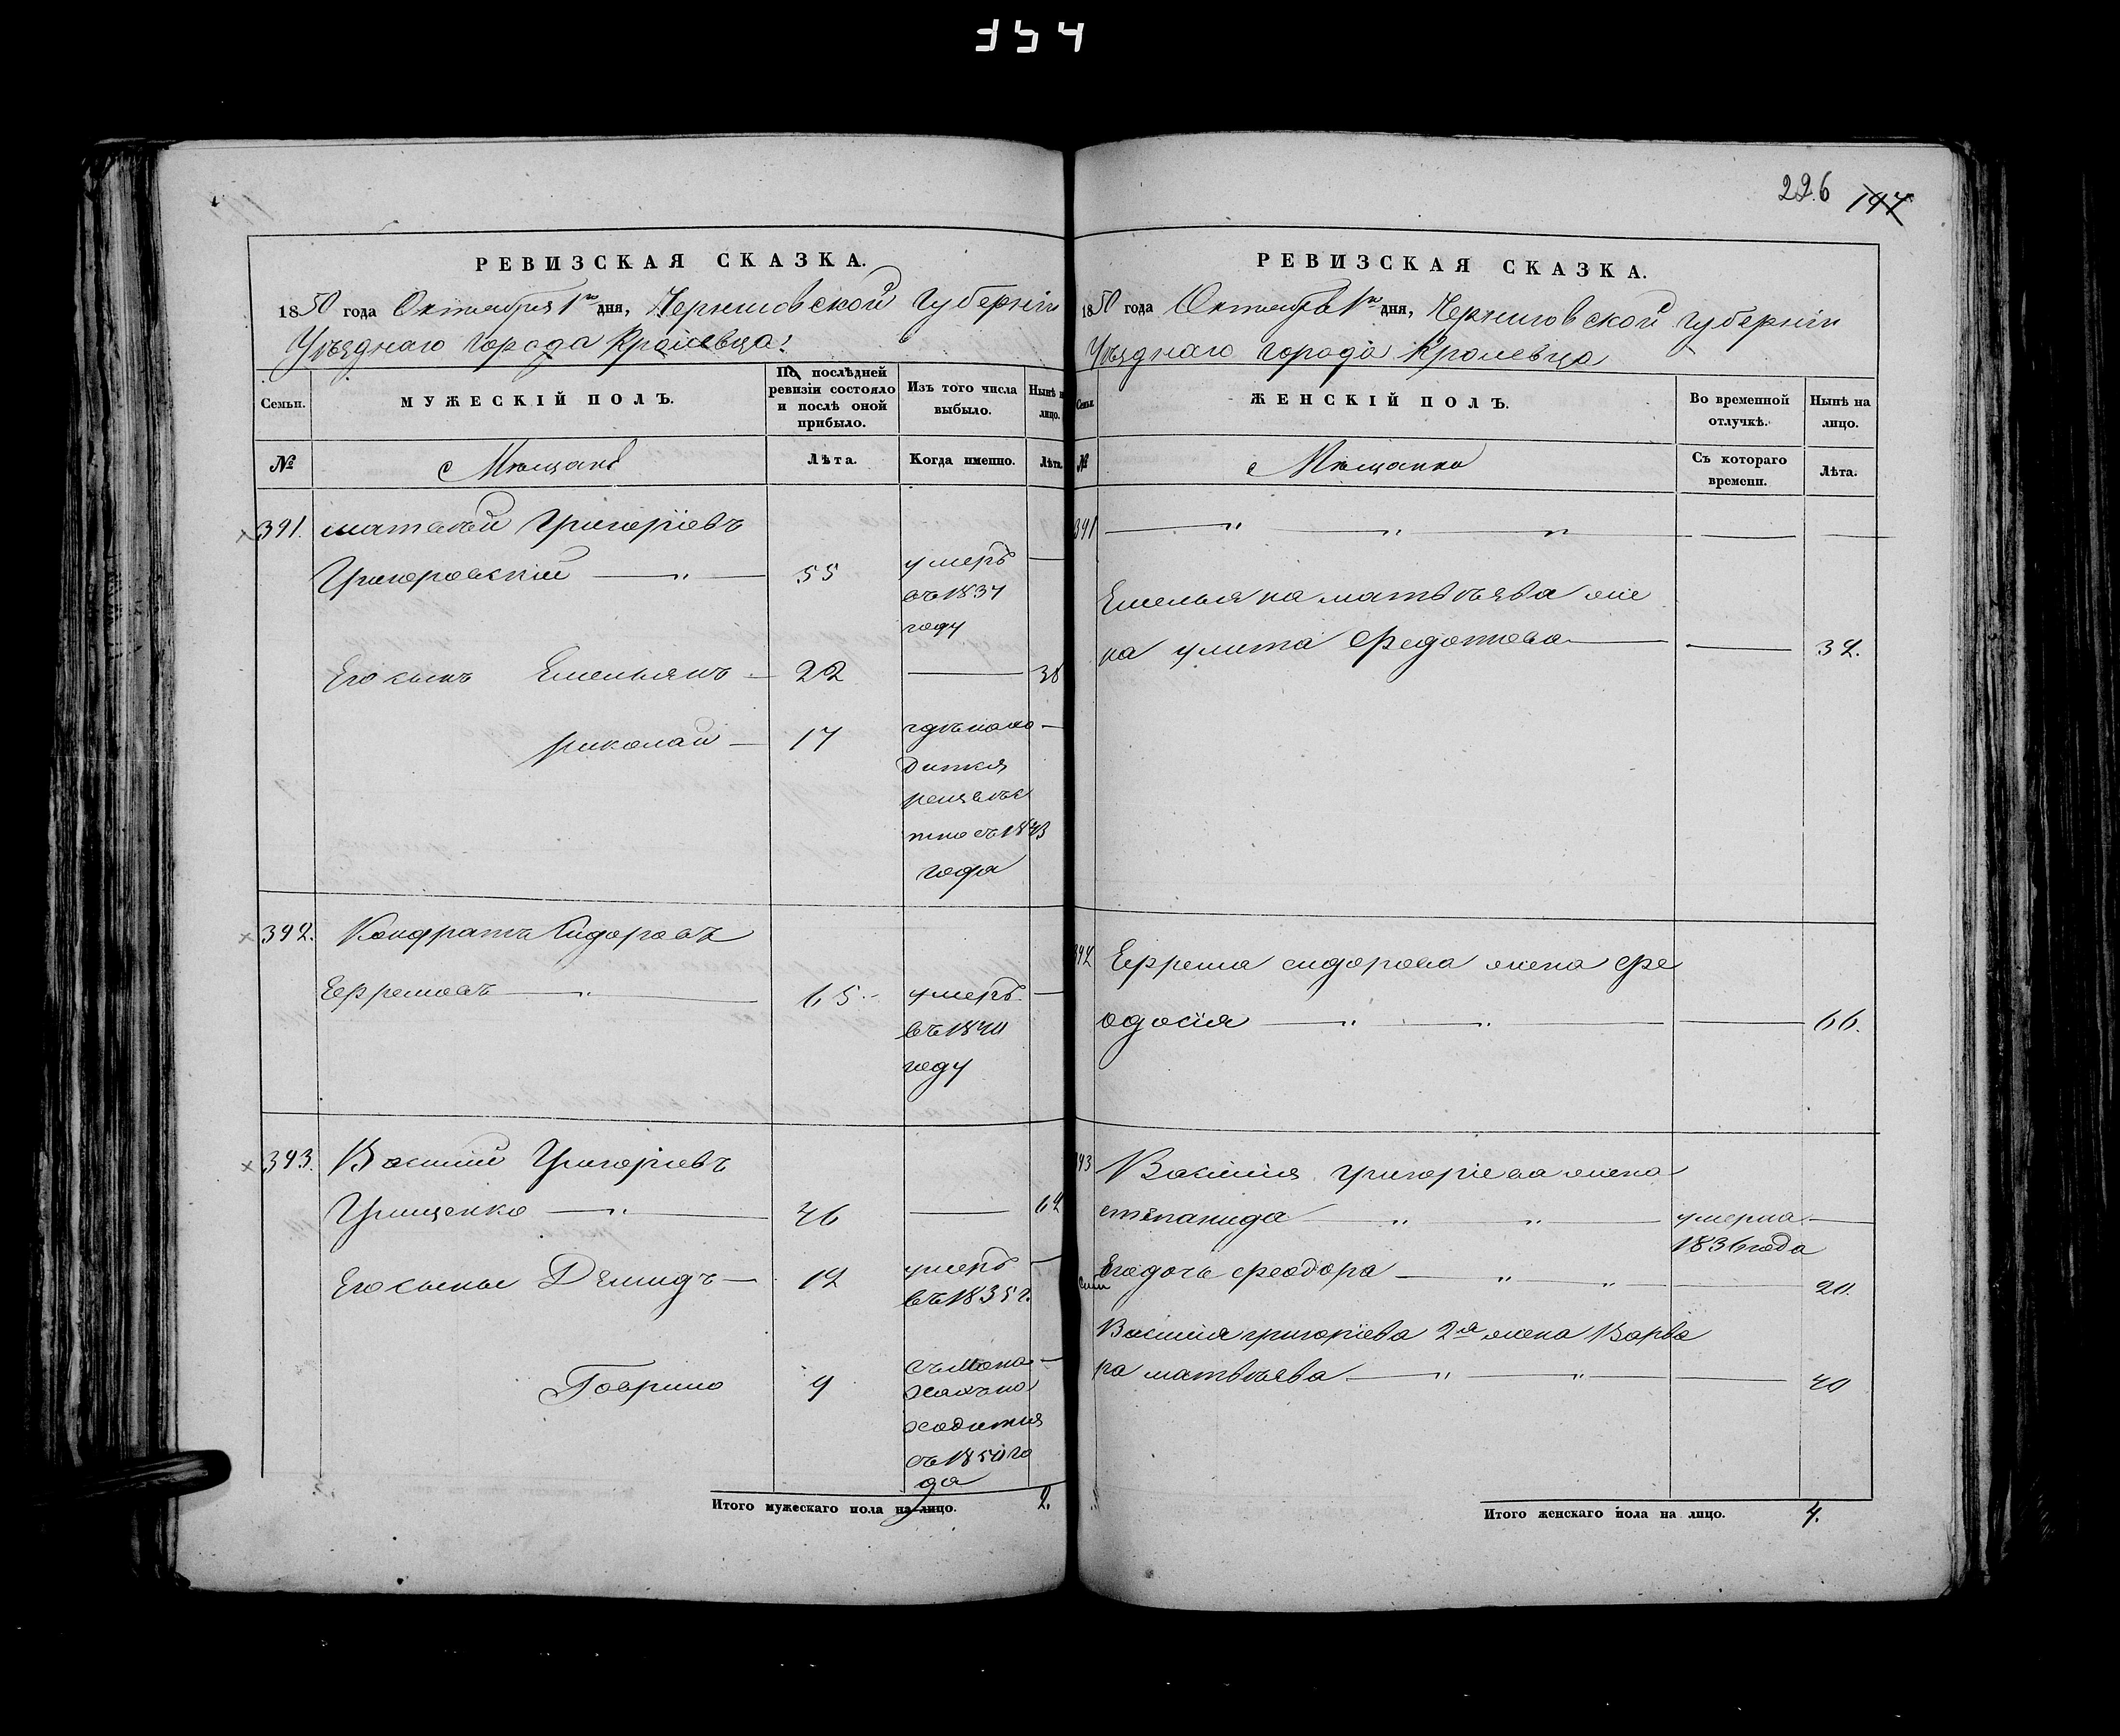 354
РЕВИЗСКАЯ СКАЗКА.
1850 года Октября 1го дня, Черниговской Губерніи
Уѣзднаго Города Кролевца.
Семьи.
МУЖЕСКІЙ ПОЛЪ.
По послѣдней ревизіи состояло и послѣ оной прибыло.
Изъ того числа выбыло.
Нынѣ на лицо.
№
Мѣщане
Лѣта.
Когда именно.
Лѣта.
391. Матвѣй Григоріевъ
Григоровскій — " — 55 умеръ —
въ 1837
году
Его сынъ Емельянъ — 22 — 38
Николай — 17 гдѣ нахо —
дится
неизвѣс
тно съ 1843
года
392. Кондратъ Сидоровъ
Ефремовъ — " — 65 умеръ —
въ 1840
году
393. Василий Григоріевъ
Грищенко — " — 46 — 62
Его сынъ Демидъ — 12 умеръ —
въ 1835 г.
Гаврило 9
ходится
съ 1850 го
да
Итого мужескаго пола на лицо. 2.
226 147
РЕВИЗСКАЯ СКАЗКА.
1850 года Октября 1го дня, Черниговской Губерніи
Уѣзднаго города Кролевца
Семьи.
ЖЕНСКІЙ ПОЛЪ.
Во временной отлучкѣ.
Нынѣ на лицо.
№
Мѣщанки
Съ котораго времени.
Лѣта.
391 — " — " — " — — —
Емельяна Матвѣева же
на Улита Федотова — — 32.
392 Ефрема Сидорова жена Фе
одосія — " — " — — 66.
393 Василия Григоріева жена
Степанида — " — " — умерла —
1836 года
Его дочь Феодора — " — " — — 20.
Василия Григоріева 2я жена Варва
ра Матвѣева — " — " — — 40
Итого женскаго пола на лицо. 4.